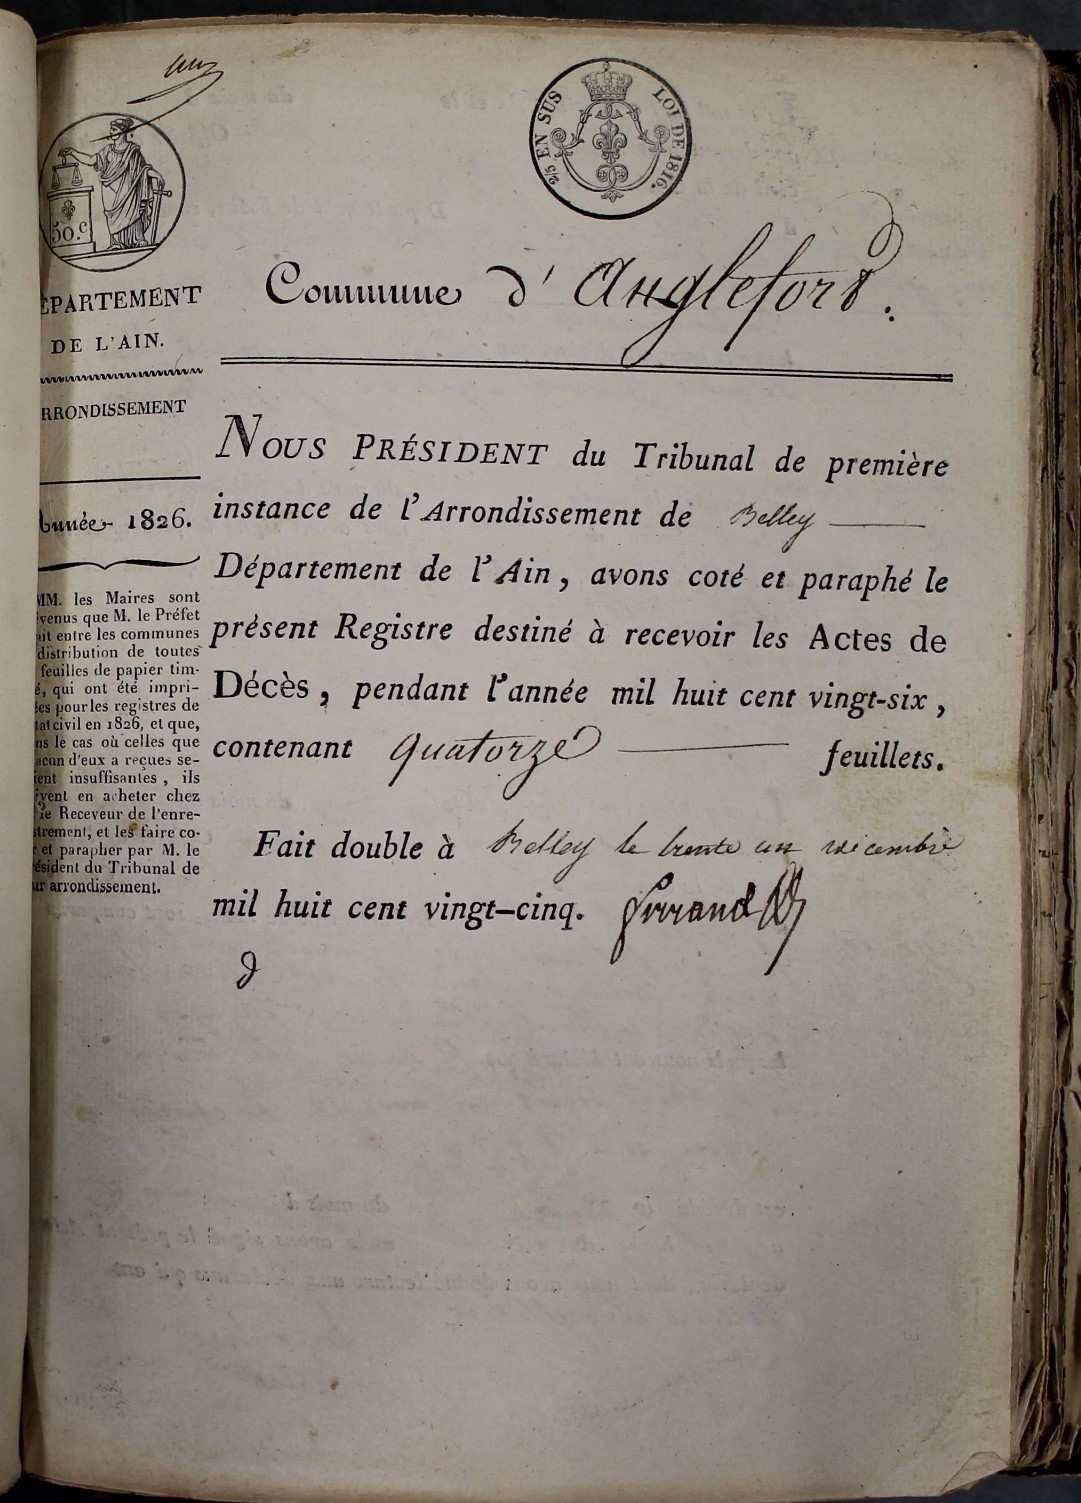 2/5 EN SUS LOI DE 1816.
50.c
ÉPARTEMENT
DE L'AIN.
RRONDISSEMENT
Année 1826.
MM. les Maires sont
venus que M. le Préfet
ait entre les communes
distribution de toutes
feuilles de papier tim-
é, qui ont été impri-
ées pour les registres de
tat civil en 1826, et que,
ns le cas où celles que
acun d'eux a reçues se-
ient insuffisantes, ils
vent en acheter chez
le Receveur de l'enre-
strement, et les faire co-
r et parapher par M. le
ésident du Tribunal de
ur arrondissement.
Commune d' Angleford.
NOUS PRÉSIDENT du Tribunal de première
instance de l'Arrondissement de Belley
Département de l'Ain, avons coté et paraphé le
présent Registre destiné à recevoir les Actes de
Décès, pendant l'année mil huit cent vingt-six,
contenant quatorze feuillets.
Fait double à Belley le trente un décembre
mil huit cent vingt-cinq.